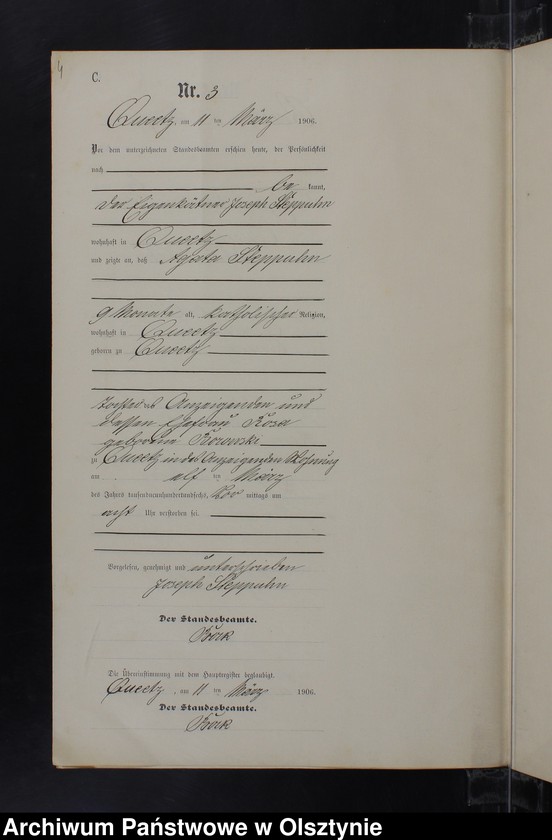 4
C.
Nr. 3
Queetz, am 11 ten März 1906.
Vor dem unterzeichneten Standesbeamten erschien heute, der Persönlichkeit
nach
be kannt,
der Eigenkätner Joseph Steppuhn
wohnhaft in Queetz
und zeigte an, daß Agata Steppuhn
9 Monate alt, katholischer Religion,
wohnhaft in Queetz
geboren zu Queetz
Tochter des Anzeigenden und
dessen Ehefrau Rosa
geborene
zu Queetz in des Anzeigenden Wohnung
am elf ten März
des Jahres tausendneunhundertundsechs, Vor mittags um
acht Uhr verstorben sei.
Vorgelesen, genehmigt und unterschrieben
Joseph Steppuhn
Der Standesbeamte.
Die Übereinstimmung mit dem Hauptregister beglaubigt.
Queetz, am 11 ten März 1906.
Der Standesbeamte.
Archiwum Państwowe w Olsztynie